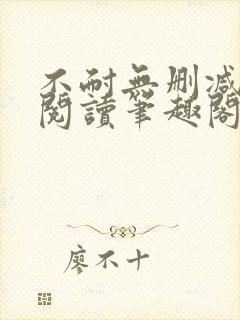 不耐無刪減
閱讀筆趣閣
廖不十